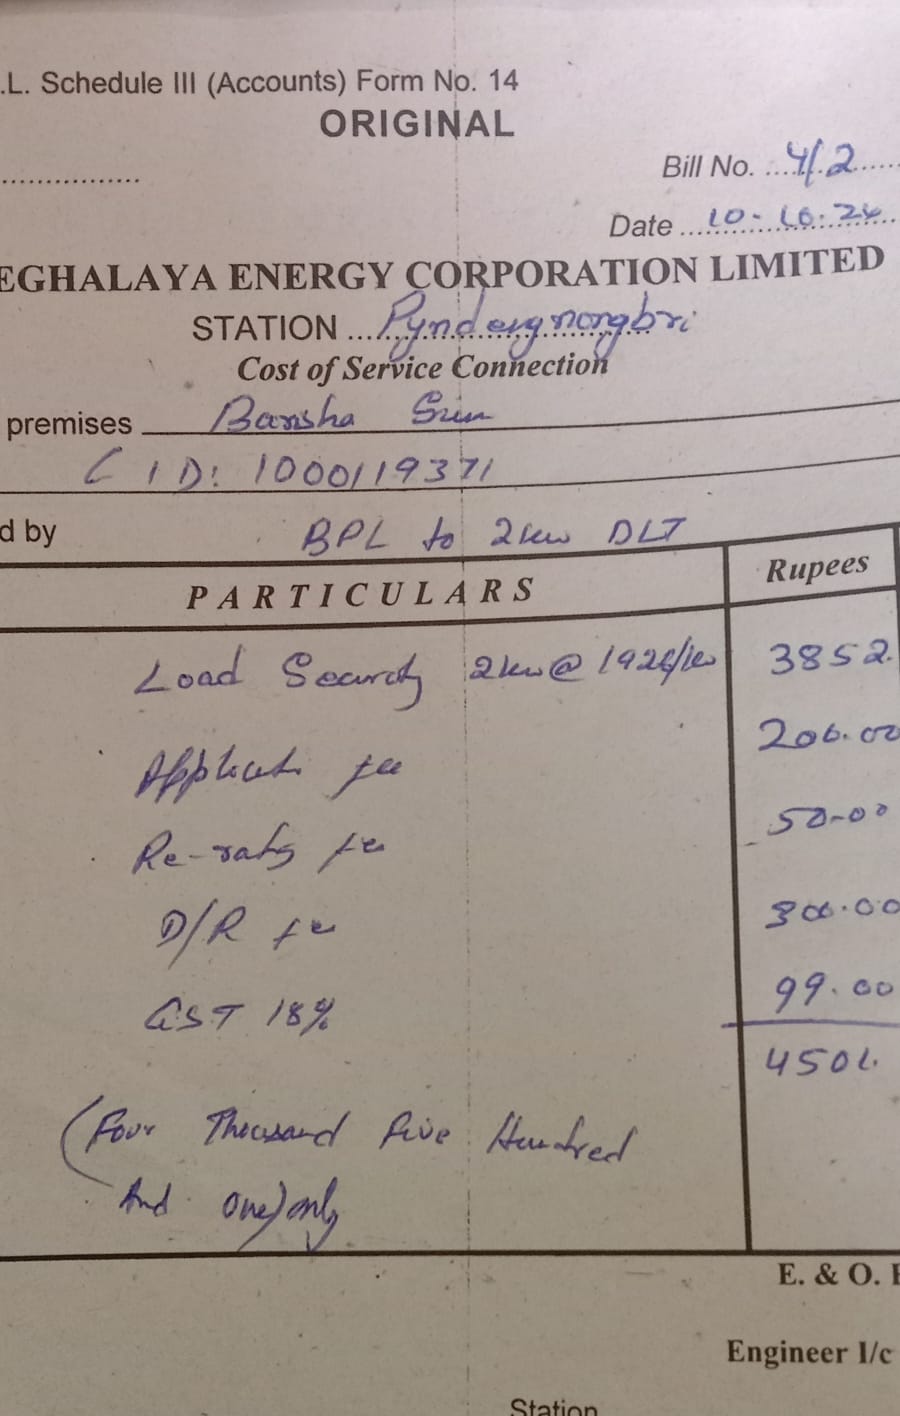 .L. Schedule III (Accounts) Form No. 14
ORIGINAL
Bill No. 4/2
Date 10-10-24
EGHALAYA ENERGY CORPORATION LIMITED
STATION Pyndengnongbri
Cost of Service Connection
premises Bansha Sun
( ID: 1000119371
d by BPL to 2kw DLT
PARTICULARS Rupees
Load Security 2kw@1926/kw 3852.
Applicati fee 200.00
Re-ratg fee 50-00
D/R fee 300.00
GST 18% 99.00
4501.
(Four Thousand five Hundred
And one) only
E. & O. E
Engineer I/c
Station